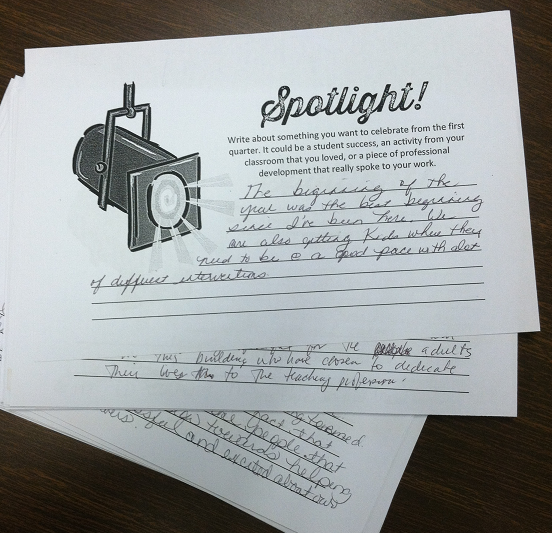 Spotlight!
Write about something you want to celebrate from the first
quarter. It could be a student success, an activity from your
classroom that you loved, or a piece of professional
development that really spoke to your work.
The beginning of the
year was the best beginning
since I've been here. We
are also getting kids where they
need to be @ a good pace with alot
of different interventions
for the adults
in this building who have chosen to dedicate
their lives to the teaching profession.
that
people that
towards helping
ful and excited about our